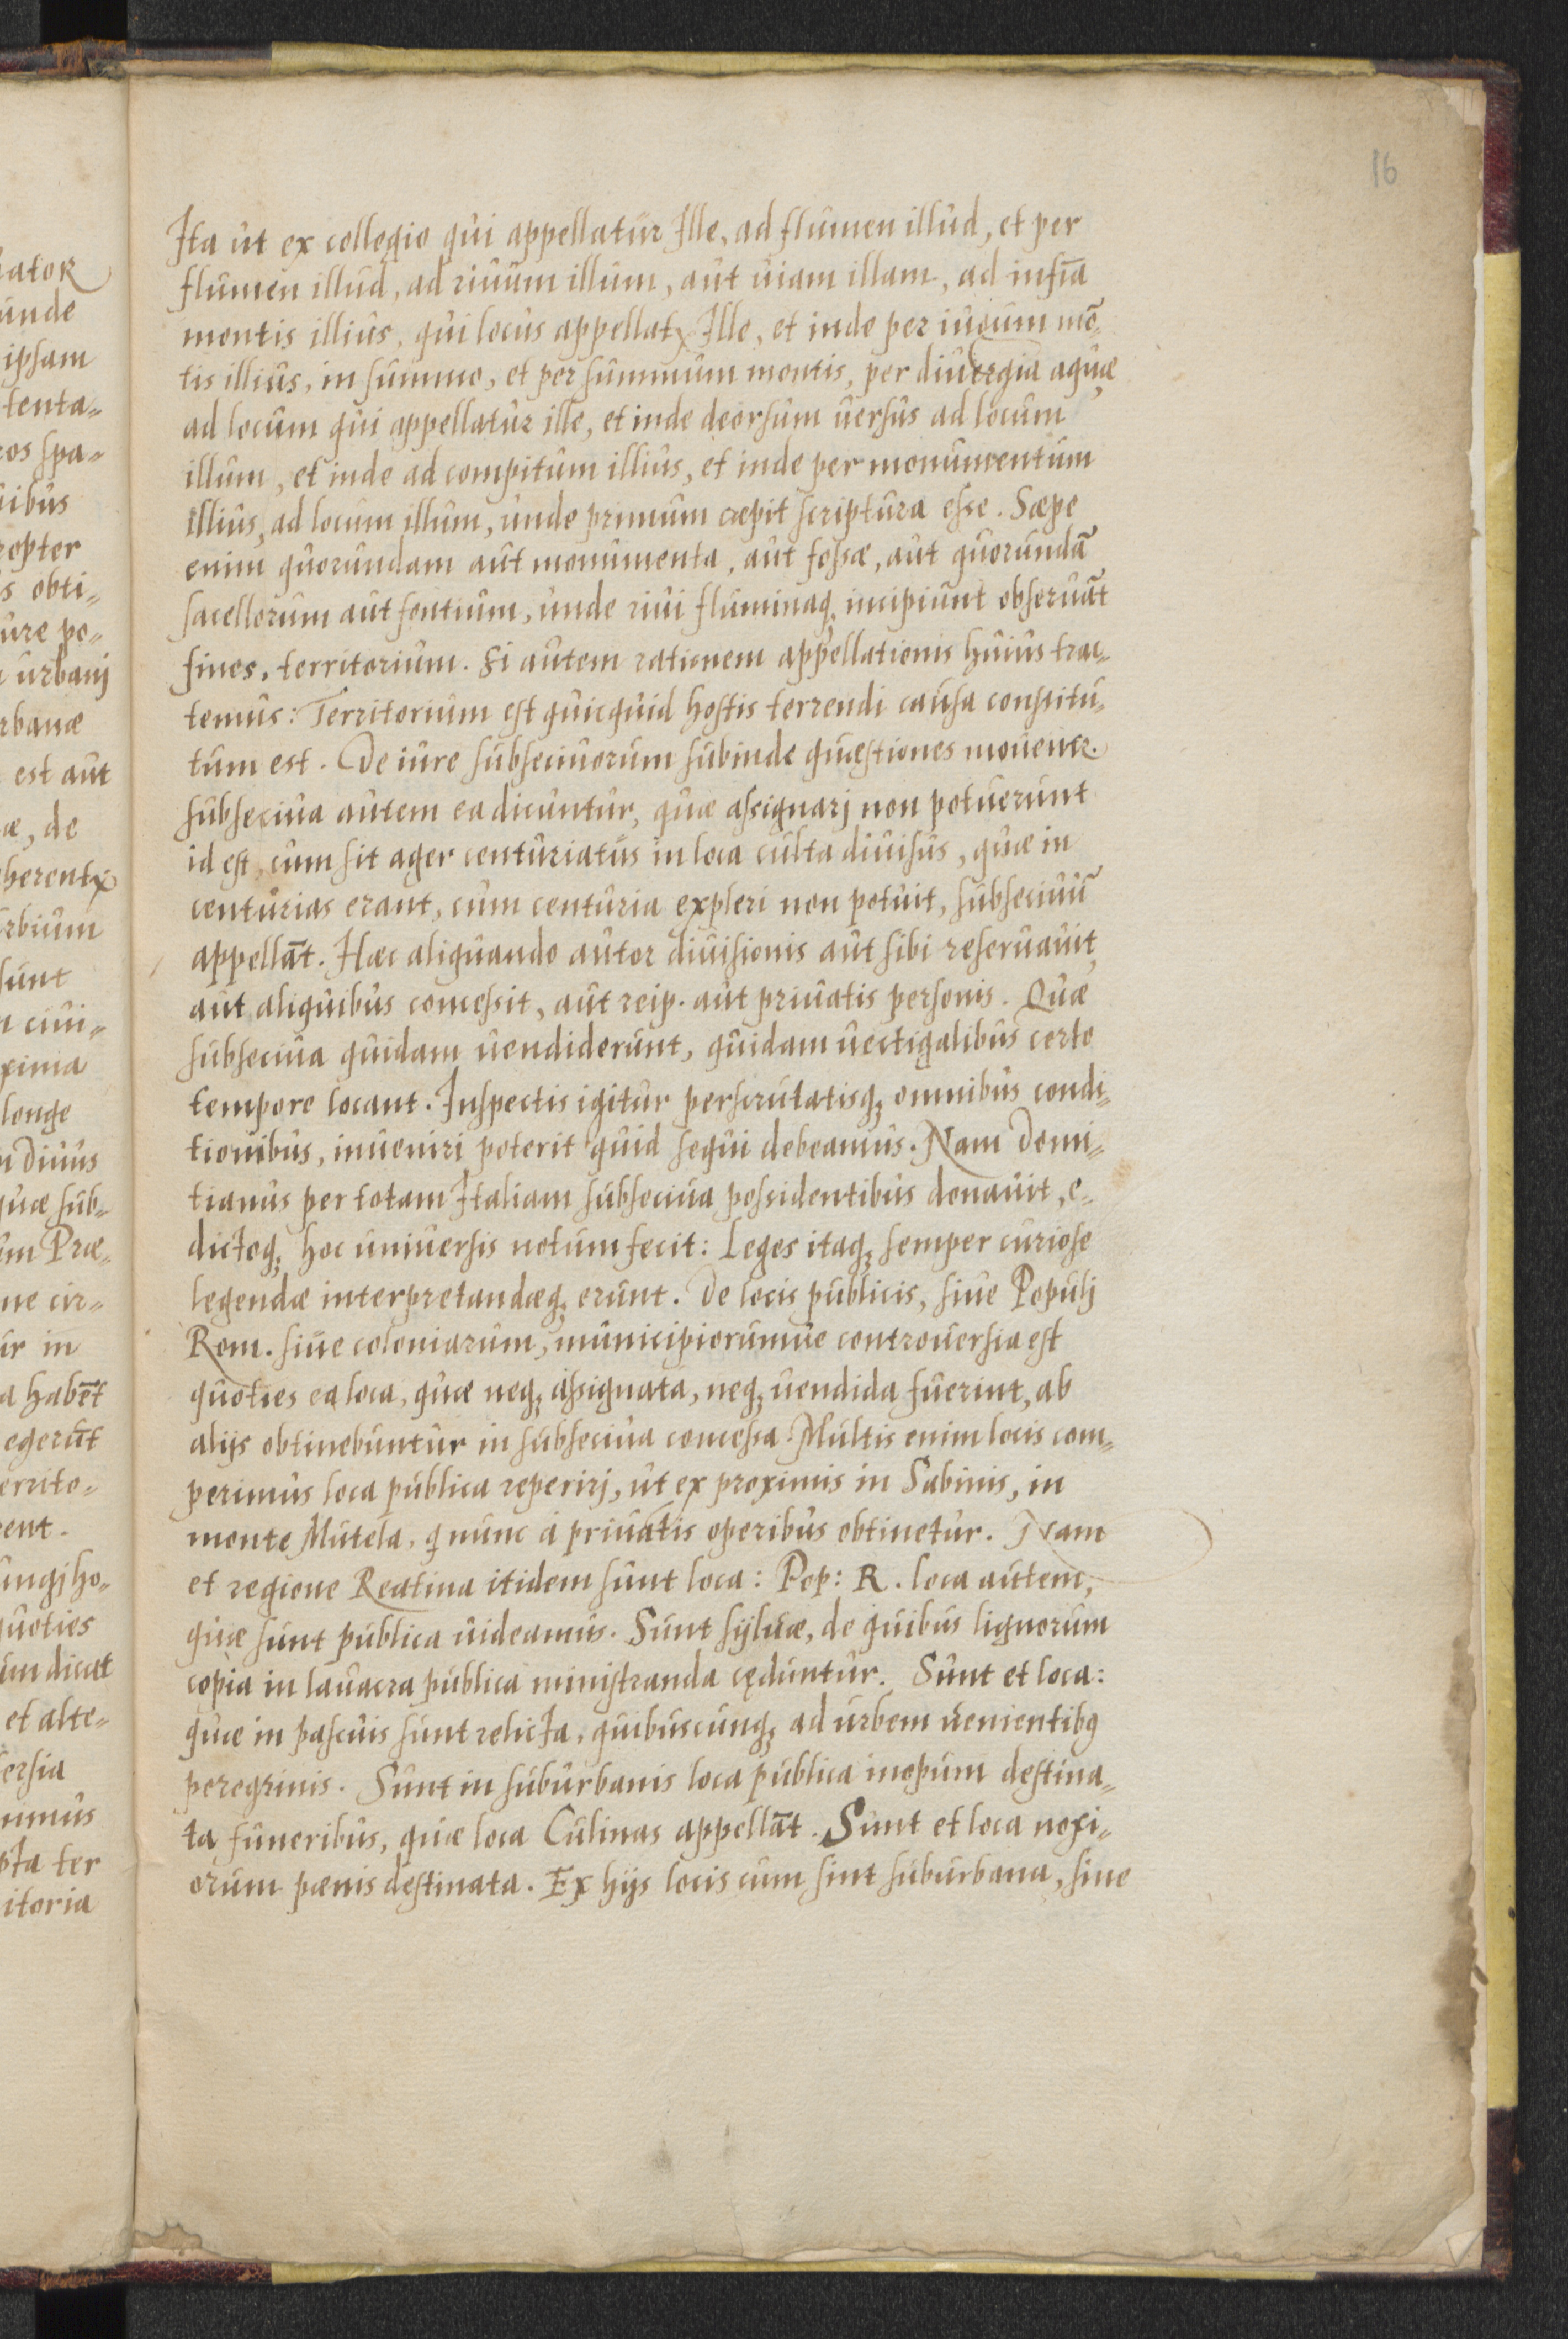 16
Ita ut ex collegio qui appellatur Ille, ad flumen illud, et per
flumen illud, ad riuum illum, aut uiam illam, ad infia
montis illius, qui locus appellatr Ille, et inde per iugum mō,
tis illius, in summo, et per summum montis, per diuergia aquæ
ad locum qui appellatur ille, et inde deorsum uersus ad locum
illum, et inde ad compitum illius, et inde per monumentum
illius, ad locum illum, unde primum cæpit scriptura esse. Sæpe
enim quorundam aut monumenta, aut fossæ, aut quorundā
sacellorum aut fontium, unde riui fluminaq; incipiunt obseruāt
fines, territorium. Si autem rationem appellationis huius trac-
temus: Territorium est quicquid hostis terrendi causa constitu-
tum est. De iure subseciuorum subinde quæstiones mouentr.
subseciua autem ea dicuntur, quæ assignarj non potuerunt
id est, cum sit ager centuriatus in loca culta diuisus, quæ in
centurias erant, cum centuria expleri non potuit, subseciuū
appellāt. Hæc aliquando autor diuisionis aut sibi reseruauit,
aut aliquibus concessit, aut reip. aut priuatis personis. Quæ
subseciua quidam uendiderunt, quidam uectigalibus certo
tempore locant. Inspectis igitur perscrutatisq; omnibus condi-
tionibus, inueniri poterit quid sequi debeamus. Nam Domi-
tianus per totam Italiam subseciua possidentibus donauit, e-
dictoq; hoc uniuersis notum fecit: Leges itaq; semper curiose
legendæ interpretandæq; erunt. De locis publicis, siue Populj
Rom. siue coloniarum, municipiorumue controuersia est
quoties ea loca, quæ neq; assignata, neq; uendida fuerint, ab
alijs obtinebuntur in subseciua concessa. Multis enim locis com-
perimus loca publica reperirj, ut ex proximis in Sabinis, in
monte Mutela, q nunc à priuatis operibus obtinetur. Nam
et regione Reatina itidem sunt loca: Pop: R. loca autem,
quæ sunt publica uideamus. Sunt syluæ, de quibus lignorum
copia in lauacra publica ministranda cęduntur. Sunt et loca:
quæ in pascuis sunt relicta, quibuscunq; ad urbem uenientibꝰ
peregrinis. Sunt in suburbanis loca publica inopum destina-
ta funeribus, quæ loca Culinas appellāt. Sunt et loca noxi-
orum pænis destinata. Ex hijs locis cum sint suburbana, sine